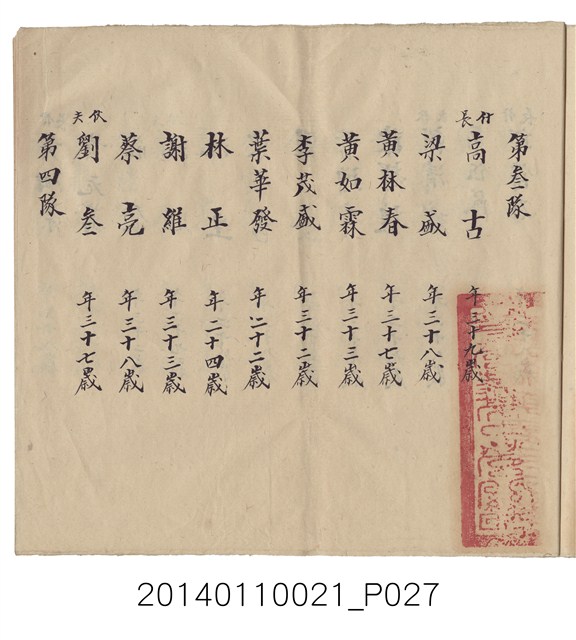 第叁隊
什長高古 年三十九歲
梁盛 年三十八歲
黃林春 年三十七歲
黃如霖 年三十三歲
李茂盛 年三十二歲
葉華發 年二十二歲
林正 年二十四歲
謝維 年三十三歲
蔡亮 年三十八歲
伙夫劉叁 年三十七歲
第四隊
20140110021_P027